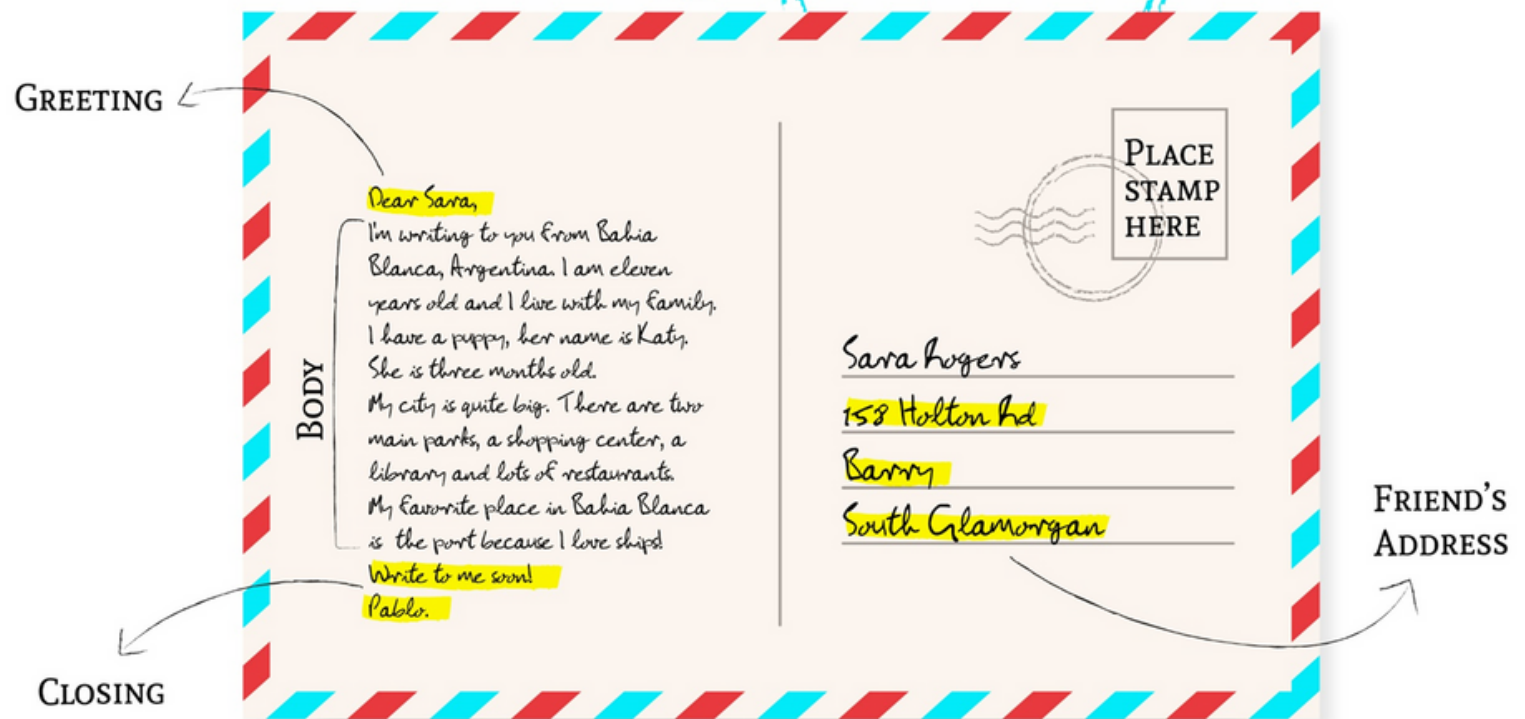 GREETING
Dear Sara,
I'm writing to you from Bahia
Blanca, Argentina. I am eleven
years old and I live with my family.
I have a puppy, her name is Katy.
She is three months old.
My city is quite big. There are two
main parks, a shopping center, a
library and lots of restaurants.
My favorite place in Bahia Blanca
is the port because I love ships!
Write to me soon!
Pablo.
BODY
CLOSING
PLACE
STAMP
HERE
Sara Rogers
158 Holton Rd
Barry
South Glamorgan
FRIEND'S
ADDRESS